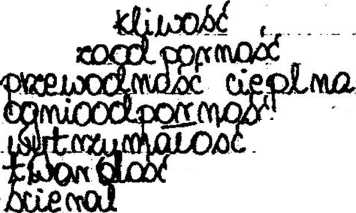 kliwość
rood porność
przewodność cieplna
ognioodporność
wytrzymałość
twardość
ścieral